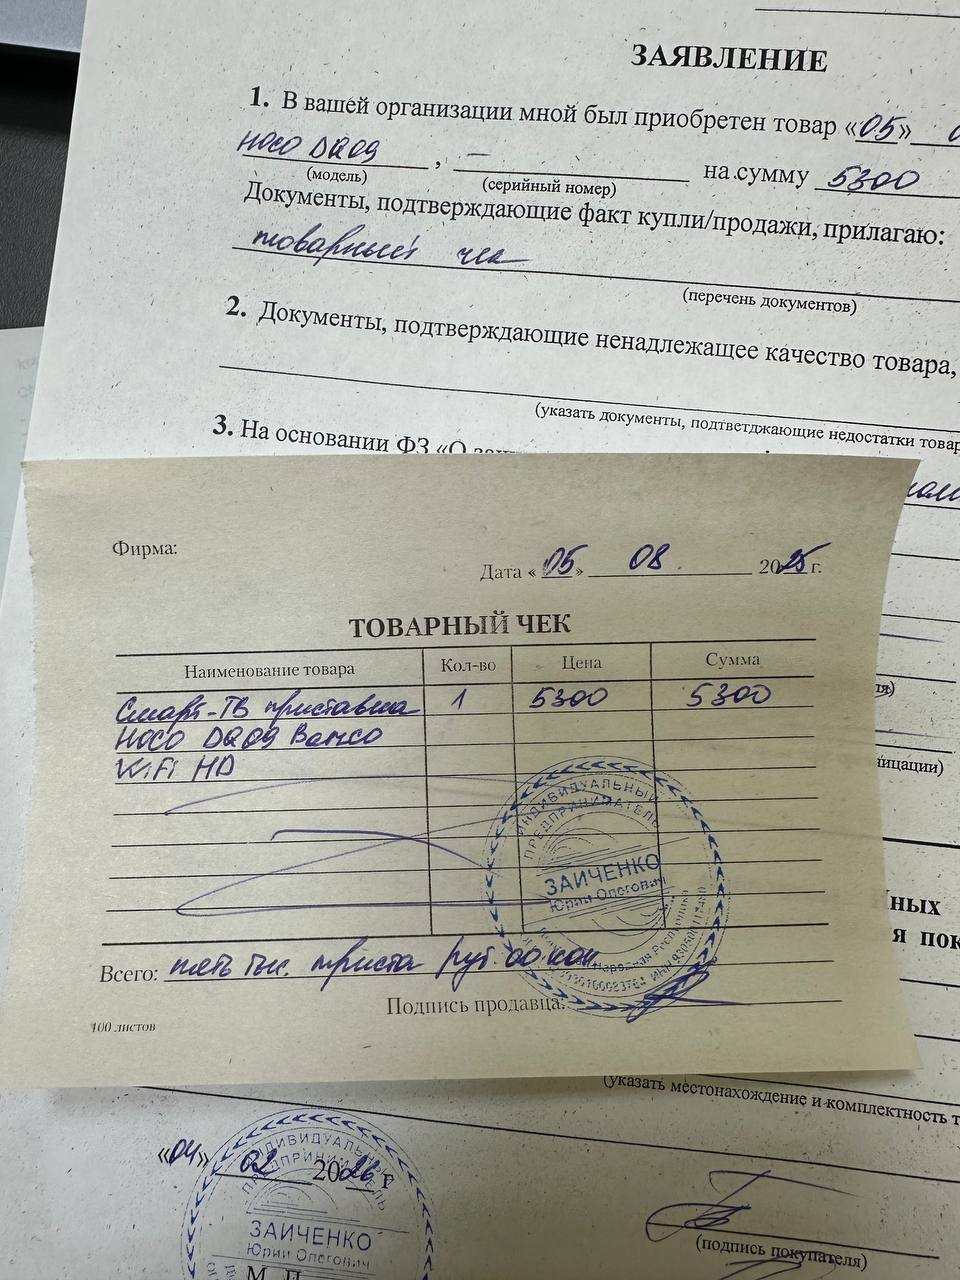 ЗАЯВЛЕНИЕ
1. В вашей организации мной был приобретен товар «05»
HOCO DQ09 , – на сумму 5300
(модель) (серийный номер)
Документы, подтверждающие факт купли/продажи, прилагаю:
товарный чек
(перечень документов)
2. Документы, подтверждающие ненадлежащее качество товара,
(указать документы, подтветджающие недостатки товар
3. На основании ФЗ «О
Фирма:
Дата «05» 08. 2025 г.
ТОВАРНЫЙ ЧЕК
Наименование товара Кол-во Цена Сумма
Смарт-ТВ приставка 1 5300 5300
HOCO DQ09
WiFi HD
ИНДИВИДУАЛЬНЫЙ
ПРЕДПРИНИМАТЕЛЬ
ЗАИЧЕНКО
Юрий Олегович
Всего: пять тыс. триста руб. 00 коп
Подпись продавца:
100 листов
ницации)
ных
я пок
(указать местонахождение и комплектность т
«04» 02 2026 г
ИНДИВИДУАЛЬНЫЙ
ПРЕДПРИНИМАТЕЛЬ
ЗАИЧЕНКО
Юрий Олегович
М. П.
(подпись покупателя)